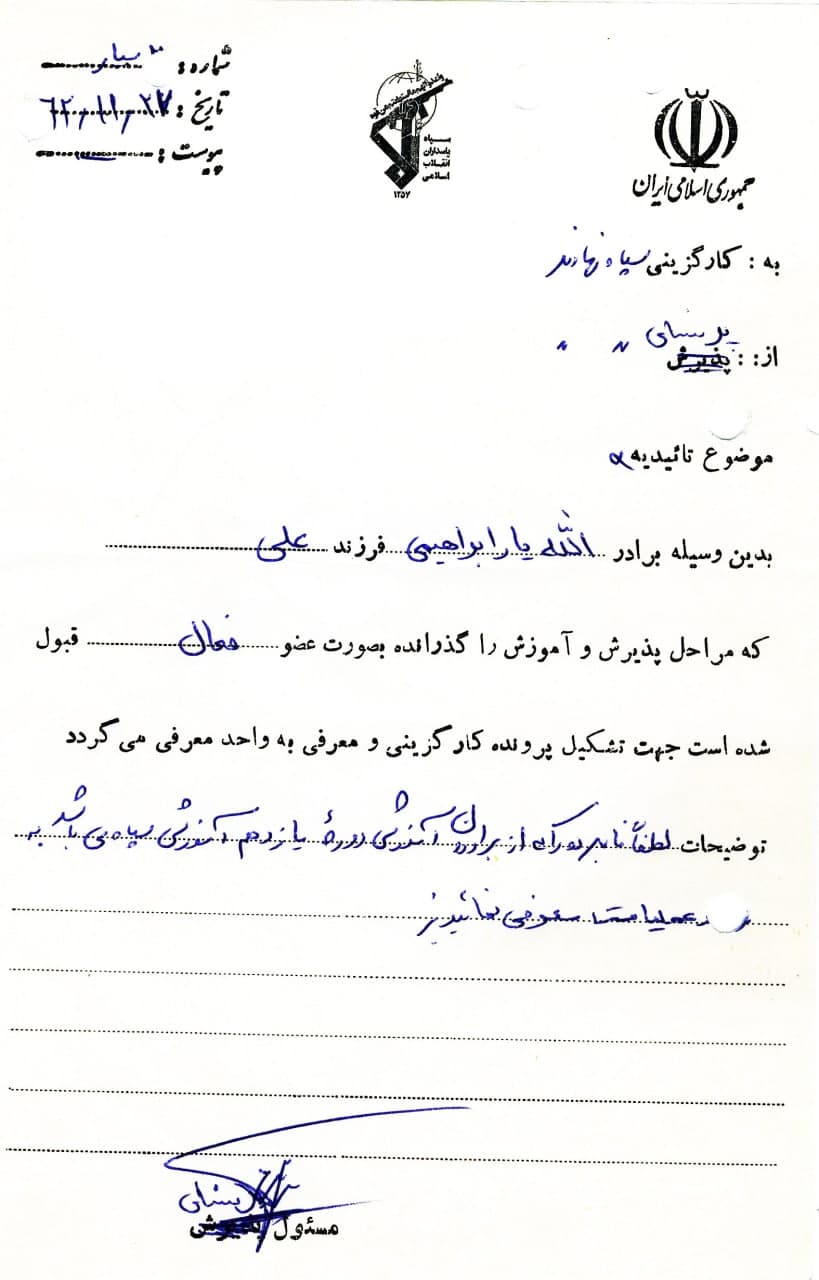 شماره: سیار
تاریخ: ۶۲/۱۱/۲۷
پیوست:
سپاه
پاسداران
انقلاب
اسلامی
۱۳۵۷
جمهوری اسلامی ایران
به: کارگزینی سپاه نهاوند
پرسنلی
از: : پذیرش " "
موضوع تائیدیه
بدین وسیله برادر الله یار ابراهیمی فرزند علی
که مراحل پذیرش و آموزش را گذرانده بصورت عضو فعال قبول
شده است جهت تشکیل پرونده کارگزینی و معرفی به واحد معرفی می گردد
توضیحات لطفاً نامبرده که از برادران آموزشی دوره یازدهم آموزشی سپاه می باشد به
عملیات معرفی نمائید
پرسنلی
مسئول پذیرش